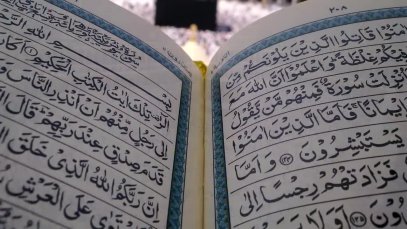 ٢٠٨
ءَامَنُوا قَاتِلُوا الَّذِينَ يَلُونَكُم مِّنَ
غِلْظَةً وَاعْلَمُوا أَنَّ اللَّهَ مَعَ
سُورَةٌ فَمِنْهُم مَّن يَقُولُ
إِيمَانًا فَأَمَّا الَّذِينَ ءَامَنُوا
يَسْتَبْشِرُونَ ١٢٤ وَأَمَّا
فَزَادَتْهُمْ رِجْسًا إِلَى
١٢٥
بِسْمِ اللَّهِ
الر تِلْكَ ءَايَاتُ الْكِتَابِ الْحَكِيمِ ١ أَكَانَ
إِلَى رَجُلٍ مِّنْهُمْ أَنْ أَنذِرِ النَّاسَ
قَدَمَ صِدْقٍ عِندَ رَبِّهِمْ قَالَ
إِنَّ رَبَّكُمُ اللَّهُ الَّذِي خَلَقَ
عَلَى الْعَرْشِ